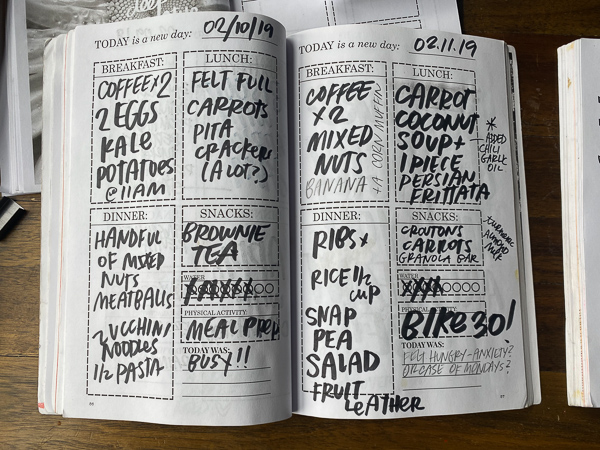 TODAY is a new day: 02/10/19
BREAKFAST:
COFFEE x 2
2 EGGS
KALE
POTATOES
@ 11AM
LUNCH:
FELT FULL
CARROTS
PITA
CRACKERS
(A LOT?)
DINNER:
HANDFUL
OF MIXED
NUTS
MEATBALLS
ZUCCHINI
NOODLES
1/2 PASTA
SNACKS:
BROWNIE
TEA
WATER
PHYSICAL ACTIVITY:
MEAL PREP
TODAY WAS:
BUSY!!
TODAY is a new day: 02.11.19
BREAKFAST:
COFFEE
x 2
MIXED
NUTS
BANANA
+ A CORN MUFFIN
LUNCH:
CARROT
COCONUT
SOUP +
1 PIECE
PERSIAN
FRITTATA
* ADDED
CHILI
GARLIC
OIL
DINNER:
RIBS +
RICE 1/2
CUP
SNAP
PEA
SALAD
FRUIT
LEATHER
SNACKS:
CROUTONS
CARROTS
GRANOLA BAR
+ TURMERIC
ALMOND
MILK
WATER
PHYSICAL ACTIVITY:
BIKE 30!
TODAY WAS:
FELT HUNGRY - ANXIETY?
OR CASE OF MONDAYS?